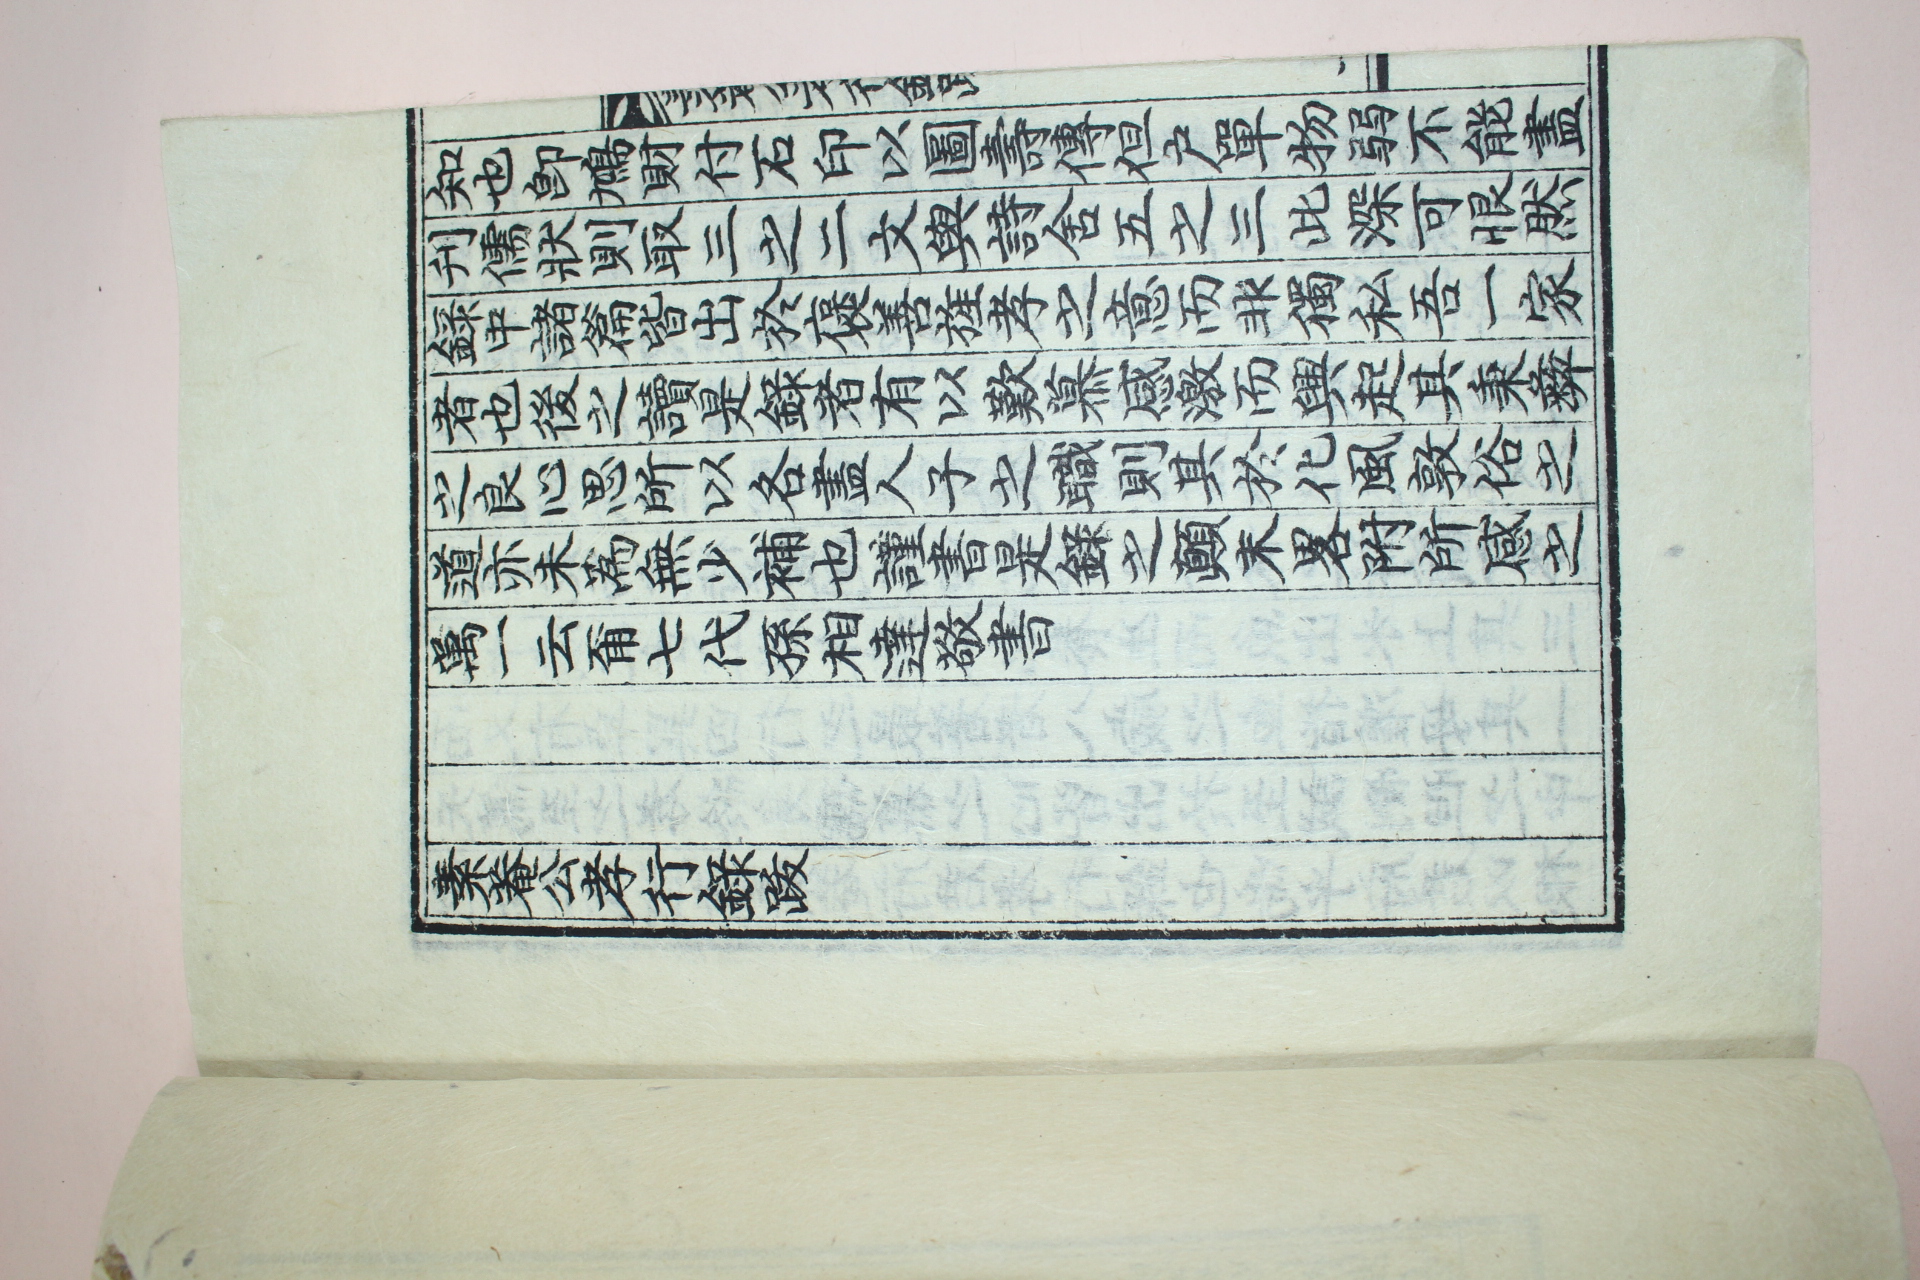 知也卽鳩財付石印以圖壽傳但戶單物弱不能盡
刋儒狀則取三之二文與詩舍五之三此深可恨然
錄中諸篇皆出於褒善旌孝之意而非獨私吾一家
者也後之讀是錄者有以歎感激而興起其秉彝
之良心思所以各盡人子之職則其於化風敦俗之
道亦未爲無少補也謹書是錄之顚末畧附所感之
萬一云爾七代孫相達敬書
菴公孝行錄跋